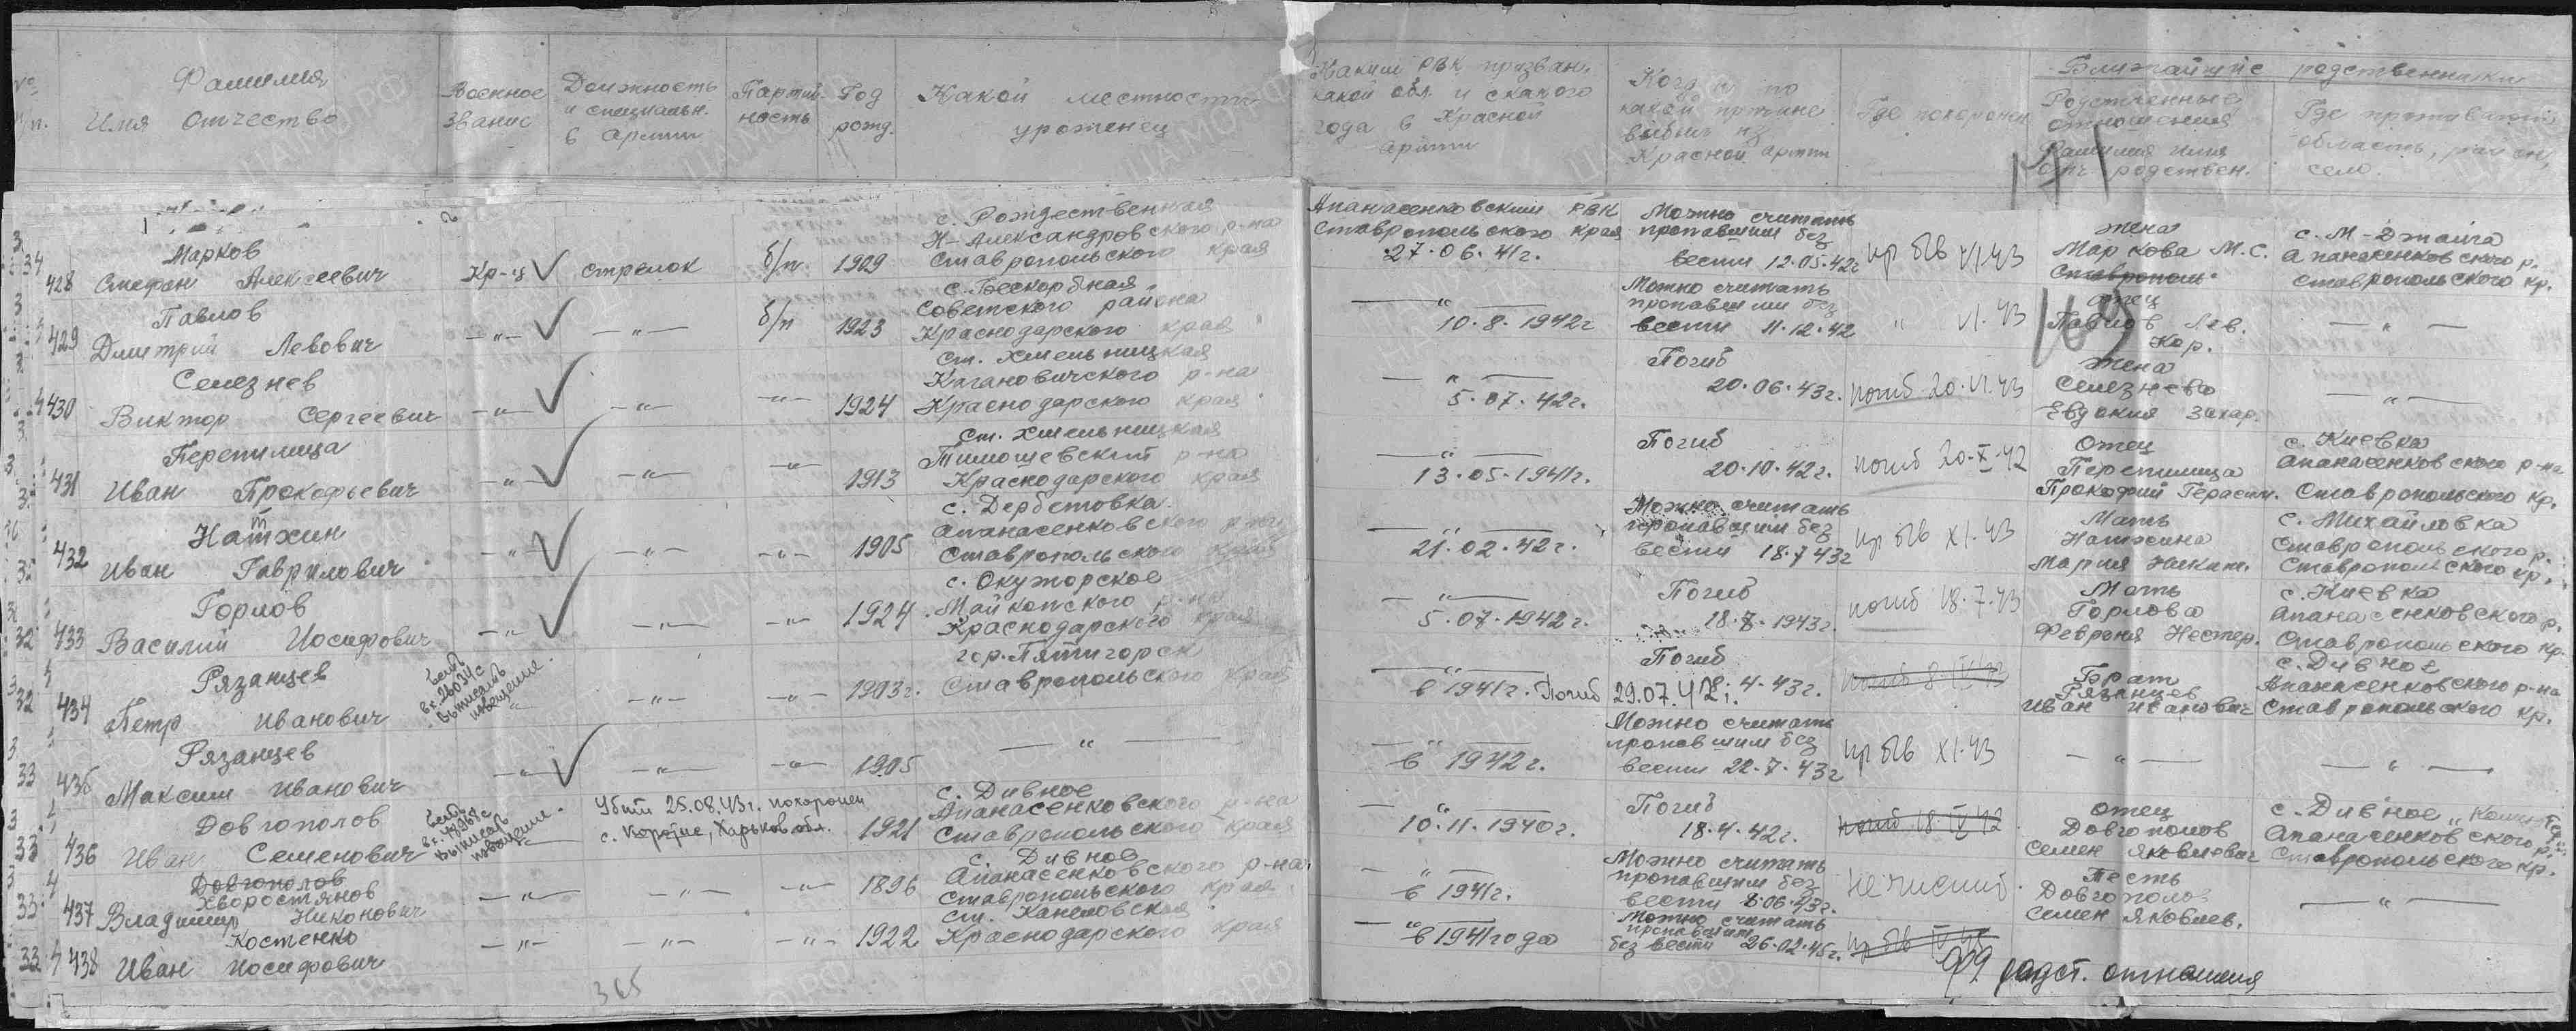 № п.
Фамилия
Имя Отчество
Военное
звание
Должность
и специальн.
в армии
Партий-
ность
Год
рожд.
Какой местности
уроженец
Каким РВК призван,
какой обл. и с какого
года в Красной
армии
Когда и по
какой причине
выбыл из
Красной армии
Где похоронен
Ближайшие родственники
Родственные
отношения
Фамилия имя
отч. родствен.
Где проживают
область, район,
село.
428
Марков
Стефан Алексеевич
Кр-ц
стрелок
б/п
1909
с. Рождественная
Н-Александровского р-на
Ставропольского края
Апанасенковский РВК
Ставропольского края
27.06.41г.
Можно считать
пропавшим без
вести 12.05.42г
пр б/в VI.43
жена
Маркова М.С.
Ставрополь
с. М-Джалга
Апанасенковского р.
Ставропольского кр.
429
Павлов
Дмитрий Левович
—"—
—"—
б/п
1923
с. Бескорбная
Советского района
Краснодарского края
—"—
10.8.1942г
Можно считать
пропавшим без
вести 11.12.42
" VI.43
отец
Павлов Лев.
Кар.
—"—
430
Селезнев
Виктор Сергеевич
—"—
—"—
—"—
1924
ст. Хмельницкая
Кагановичского р-на
Краснодарского края
—"—
5.07.42г.
Погиб
20.06.43г.
погиб 20.VI.43
жена
Селезнева
Евдокия Захар.
—"—
431
Перепилица
Иван Прокофьевич
—"—
—"—
—"—
1913
ст. Хмельницкая
Тимошевский р-на
Краснодарского края
—"—
13.05.1941г.
Погиб
20.10.42г.
погиб 20.X.42
Отец
Перепилица
Прокофий Герасим.
с. Киевка
Апанасенковского р-на
Ставропольского кр.
432
Натхин
Иван Гаврилович
—"—
—"—
—"—
1905
с. Дербетовка
Апанасенковского р-на
Ставропольского края
—"—
21.02.42г.
Можно считать
пропавшим без
вести 18.7.43г
пр б/в XI.43
Мать
Натхина
Мария Никит.
с. Михайловка
Ставропольского р.
Ставропольского кр.
433
Горлов
Василий Иосифович
—"—
—"—
—"—
1924
с. Окужорское
Майкопского р-на
Краснодарского края
—"—
5.07.1942г.
Погиб
18.7.1943г.
погиб 18.7.43
Мать
Горлова
Февронья Нестер.
с. Киевка
Апанасенковского р.
Ставропольского кр.
434
Рязанцев
Петр Иванович
вх. 26034с
выписать
извещение.
—"—
—"—
1903г.
гор. Пятигорск
Ставропольского края
—"—
в 1941г. Погиб 29.07.42г.
Погиб
8.4.43г.
погиб 8 IV 43
Брат
Рязанцев
Иван Иванович
с. Дивное
Апанасенковского р-на
Ставропольского кр.
435
Рязанцев
Максим Иванович
—"—
—"—
—"—
1905
—"—
—"—
в 1942г.
Можно считать
пропавшим без
вести 22.7.43г
пр б/в XI.43
—"—
—"—
436
Довгополов
Иван Семенович
выписать
извещение.
Убит 25.08.43г. похоронен
с. Коротие, Харьков. обл.
1921
с. Дивное
Апанасенковского р-на
Ставропольского края
—"—
10.11.1940г.
Погиб
18.4.42г.
погиб 18.IV.42
отец
Довгополов
Семен Яковлевич
с. Дивное
Апанасенковского р.
Ставропольского кр.
437
Довгополов
Хворостянов
Владимир Никонович
—"—
—"—
—"—
1896
с. Дивное
Апанасенковского р-на
Ставропольского края
—"—
в 1941г.
Можно считать
пропавшим без
вести 8.06.43г.
не числит.
Тесть
Довгополов
Семен Яковлев.
—"—
438
Костенко
Иван Иосифович
—"—
—"—
—"—
1922
ст. Каневовская
Краснодарского края
—"—
в 1941 года
Можно считать
пропавшим
без вести 26.02.45г.
пр б/в IV 45
родст. отношения
365